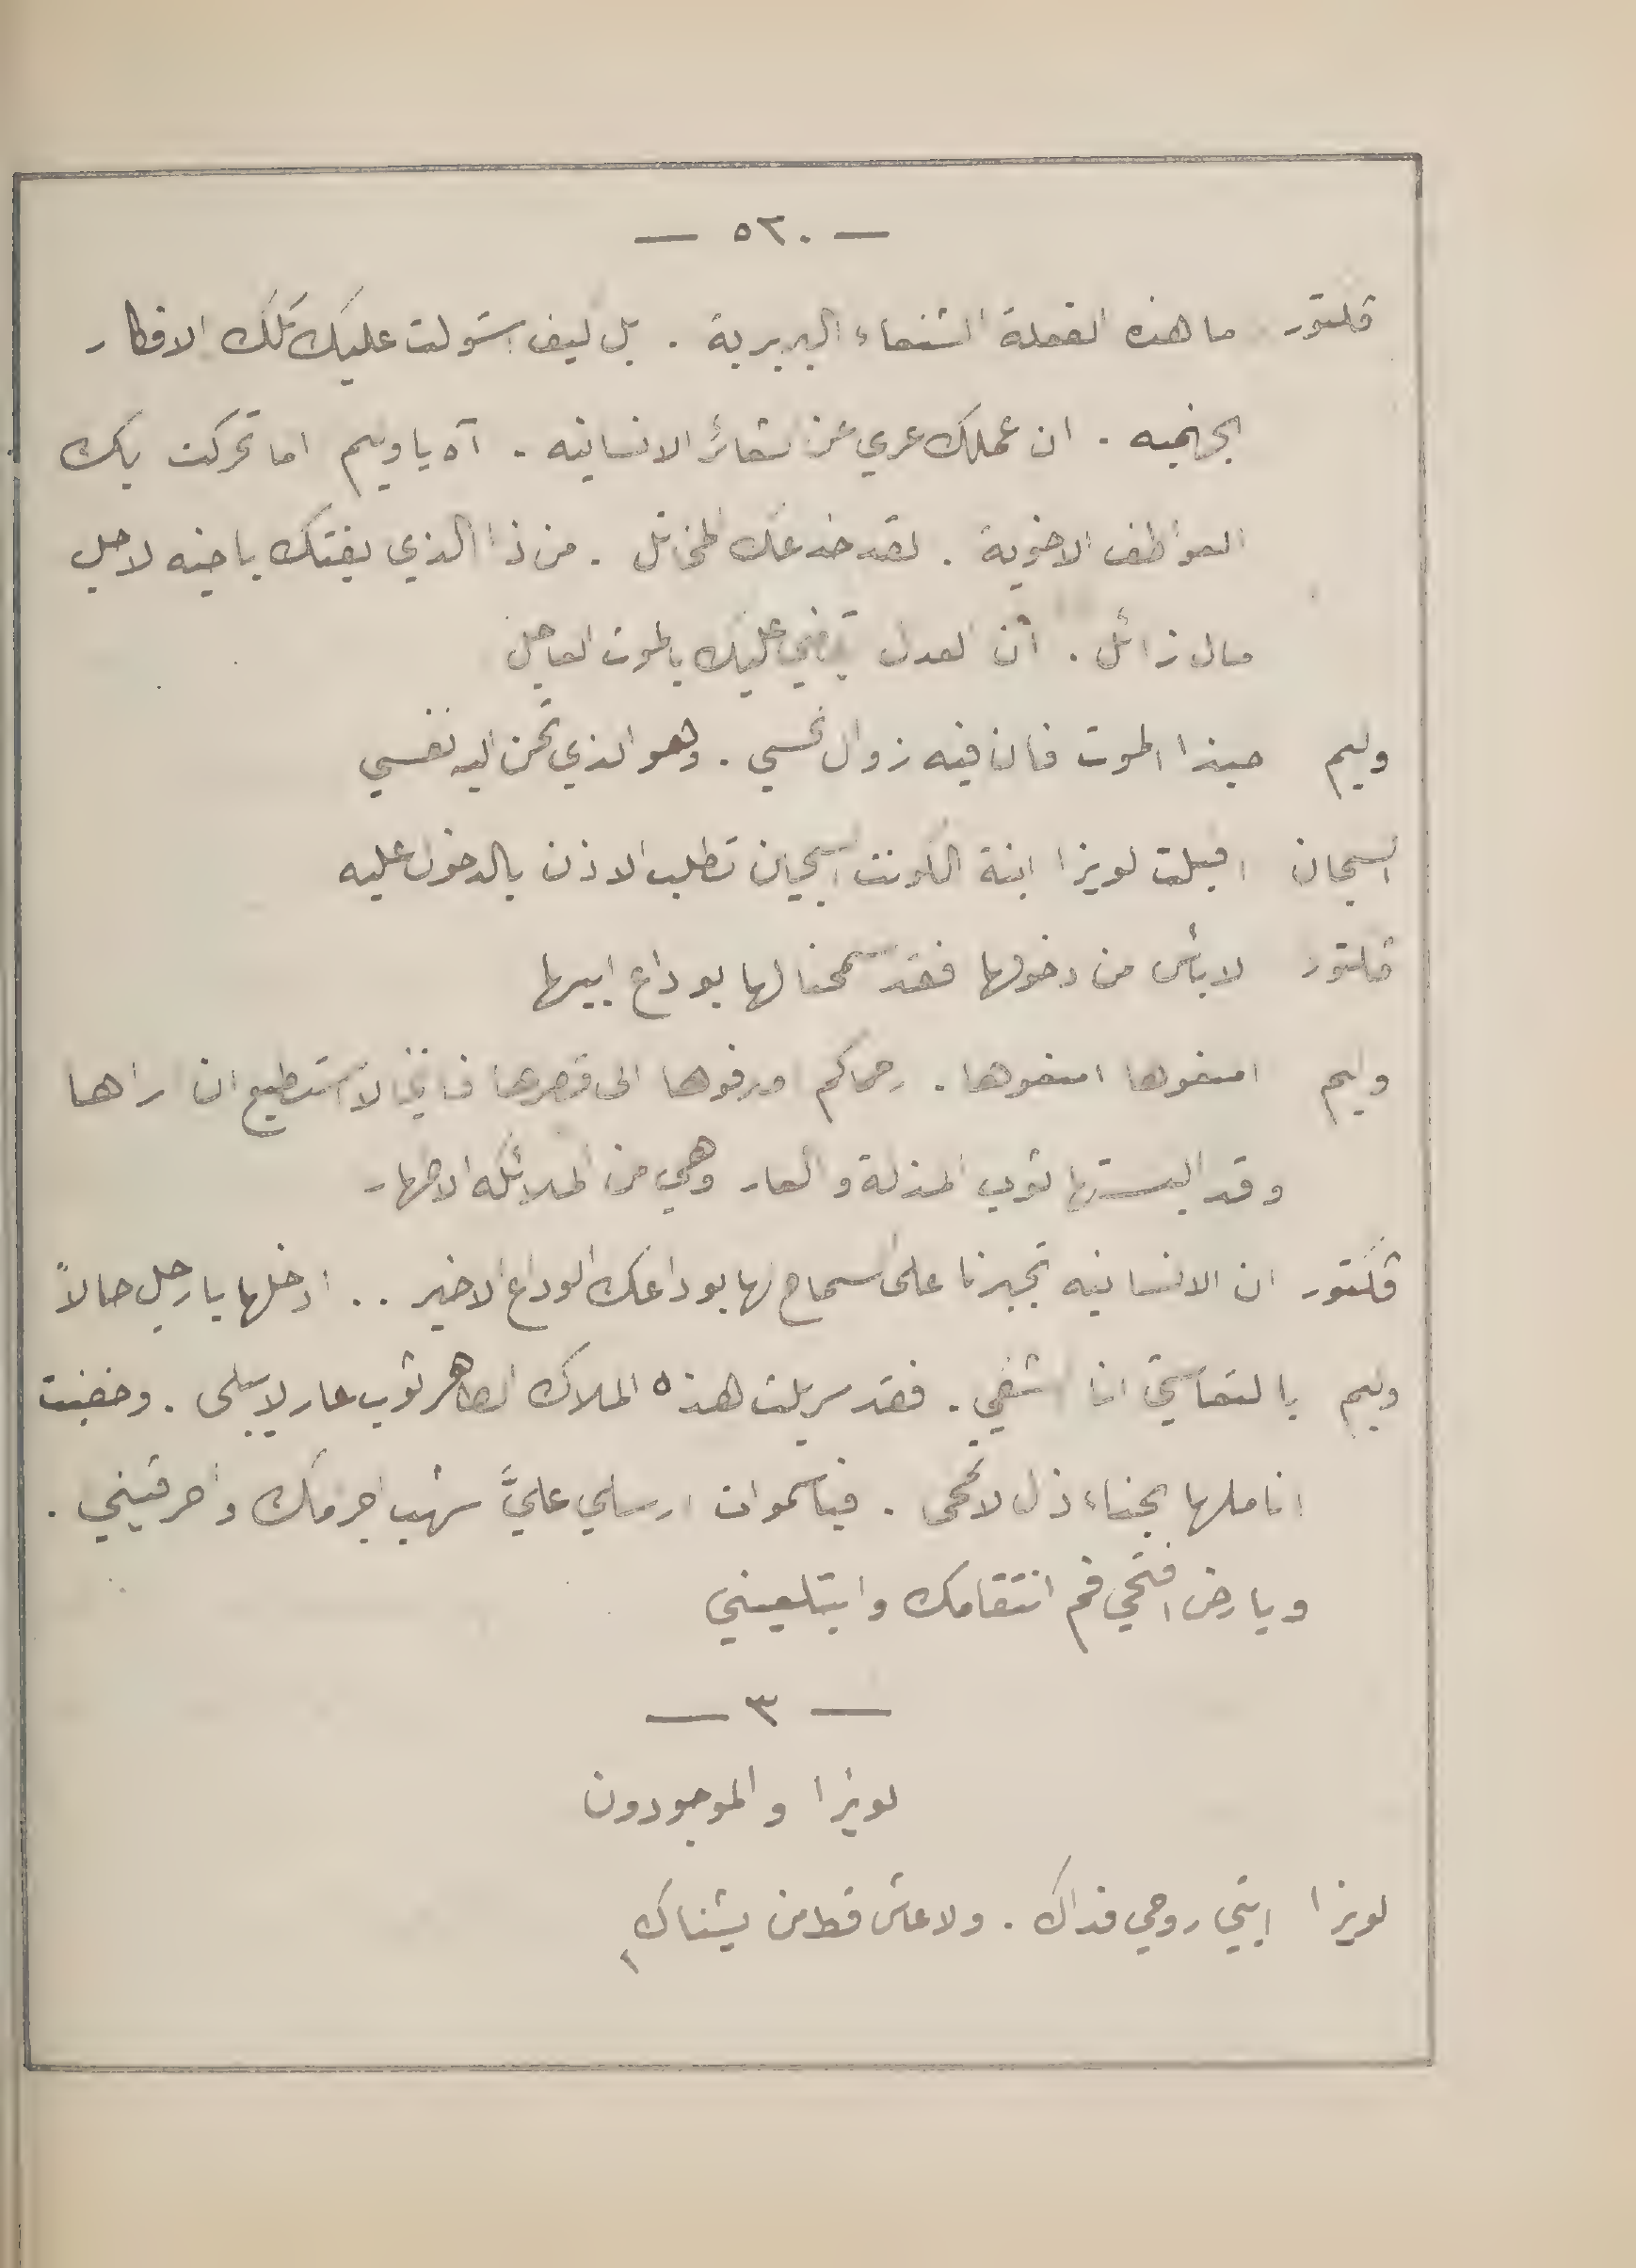 — ٥٢٠ —
ڤلتور ما هذه الفعلة الشنعاء البربرية . بل كيف استولت عليك تلك الافكار
الجهنميه . ان عملك عري عن شعائر الانسانيه . آه يا وليم اما تحركت بك
العواطف الاخوية . لقد خدعك المخاتل . من ذا الذي يفتك باخيه لاجل
مال زائل . ان العدل يقضي عليك بالموت العاجل
وليم حبذا الموت فان فيه زوال نحسي . وهو الذي تحن اليه نفسي
السجان اقبلت لويزا ابنة الكونت السجين تطلب الاذن بالدخول عليه
ڤلتور لا بأس من دخولها فقد سمحنا لها بوداع ابيها
وليم امنعوها امنعوها . رحماكم اصرفوها الى قصرها فانني لا استطيع ان اراها
وقد البستها ثوب المذلة والعار وهي من الملائكه الاطهار
ڤلتور ان الانسانيه تجبرنا على السماح لها بوداعك الوداع الاخير . . ادخلها يا رجل حالاً
وليم يا لتعاستي انا الشقي . فقد سربلت هذه الملاك الطاهر ثوب عار لا يبلى . وخضبت
اناملها بحناء ذل لا تمحى . فيا سموات ارسلي عليَّ شهب اجرمك واحرقيني .
ويا ارض افتحي فم انتقامك وابتلعيني
— ٣ —
لويزا والموجودون
لويزا ابتي روحي فداك . ولا عاش قط من يشناك